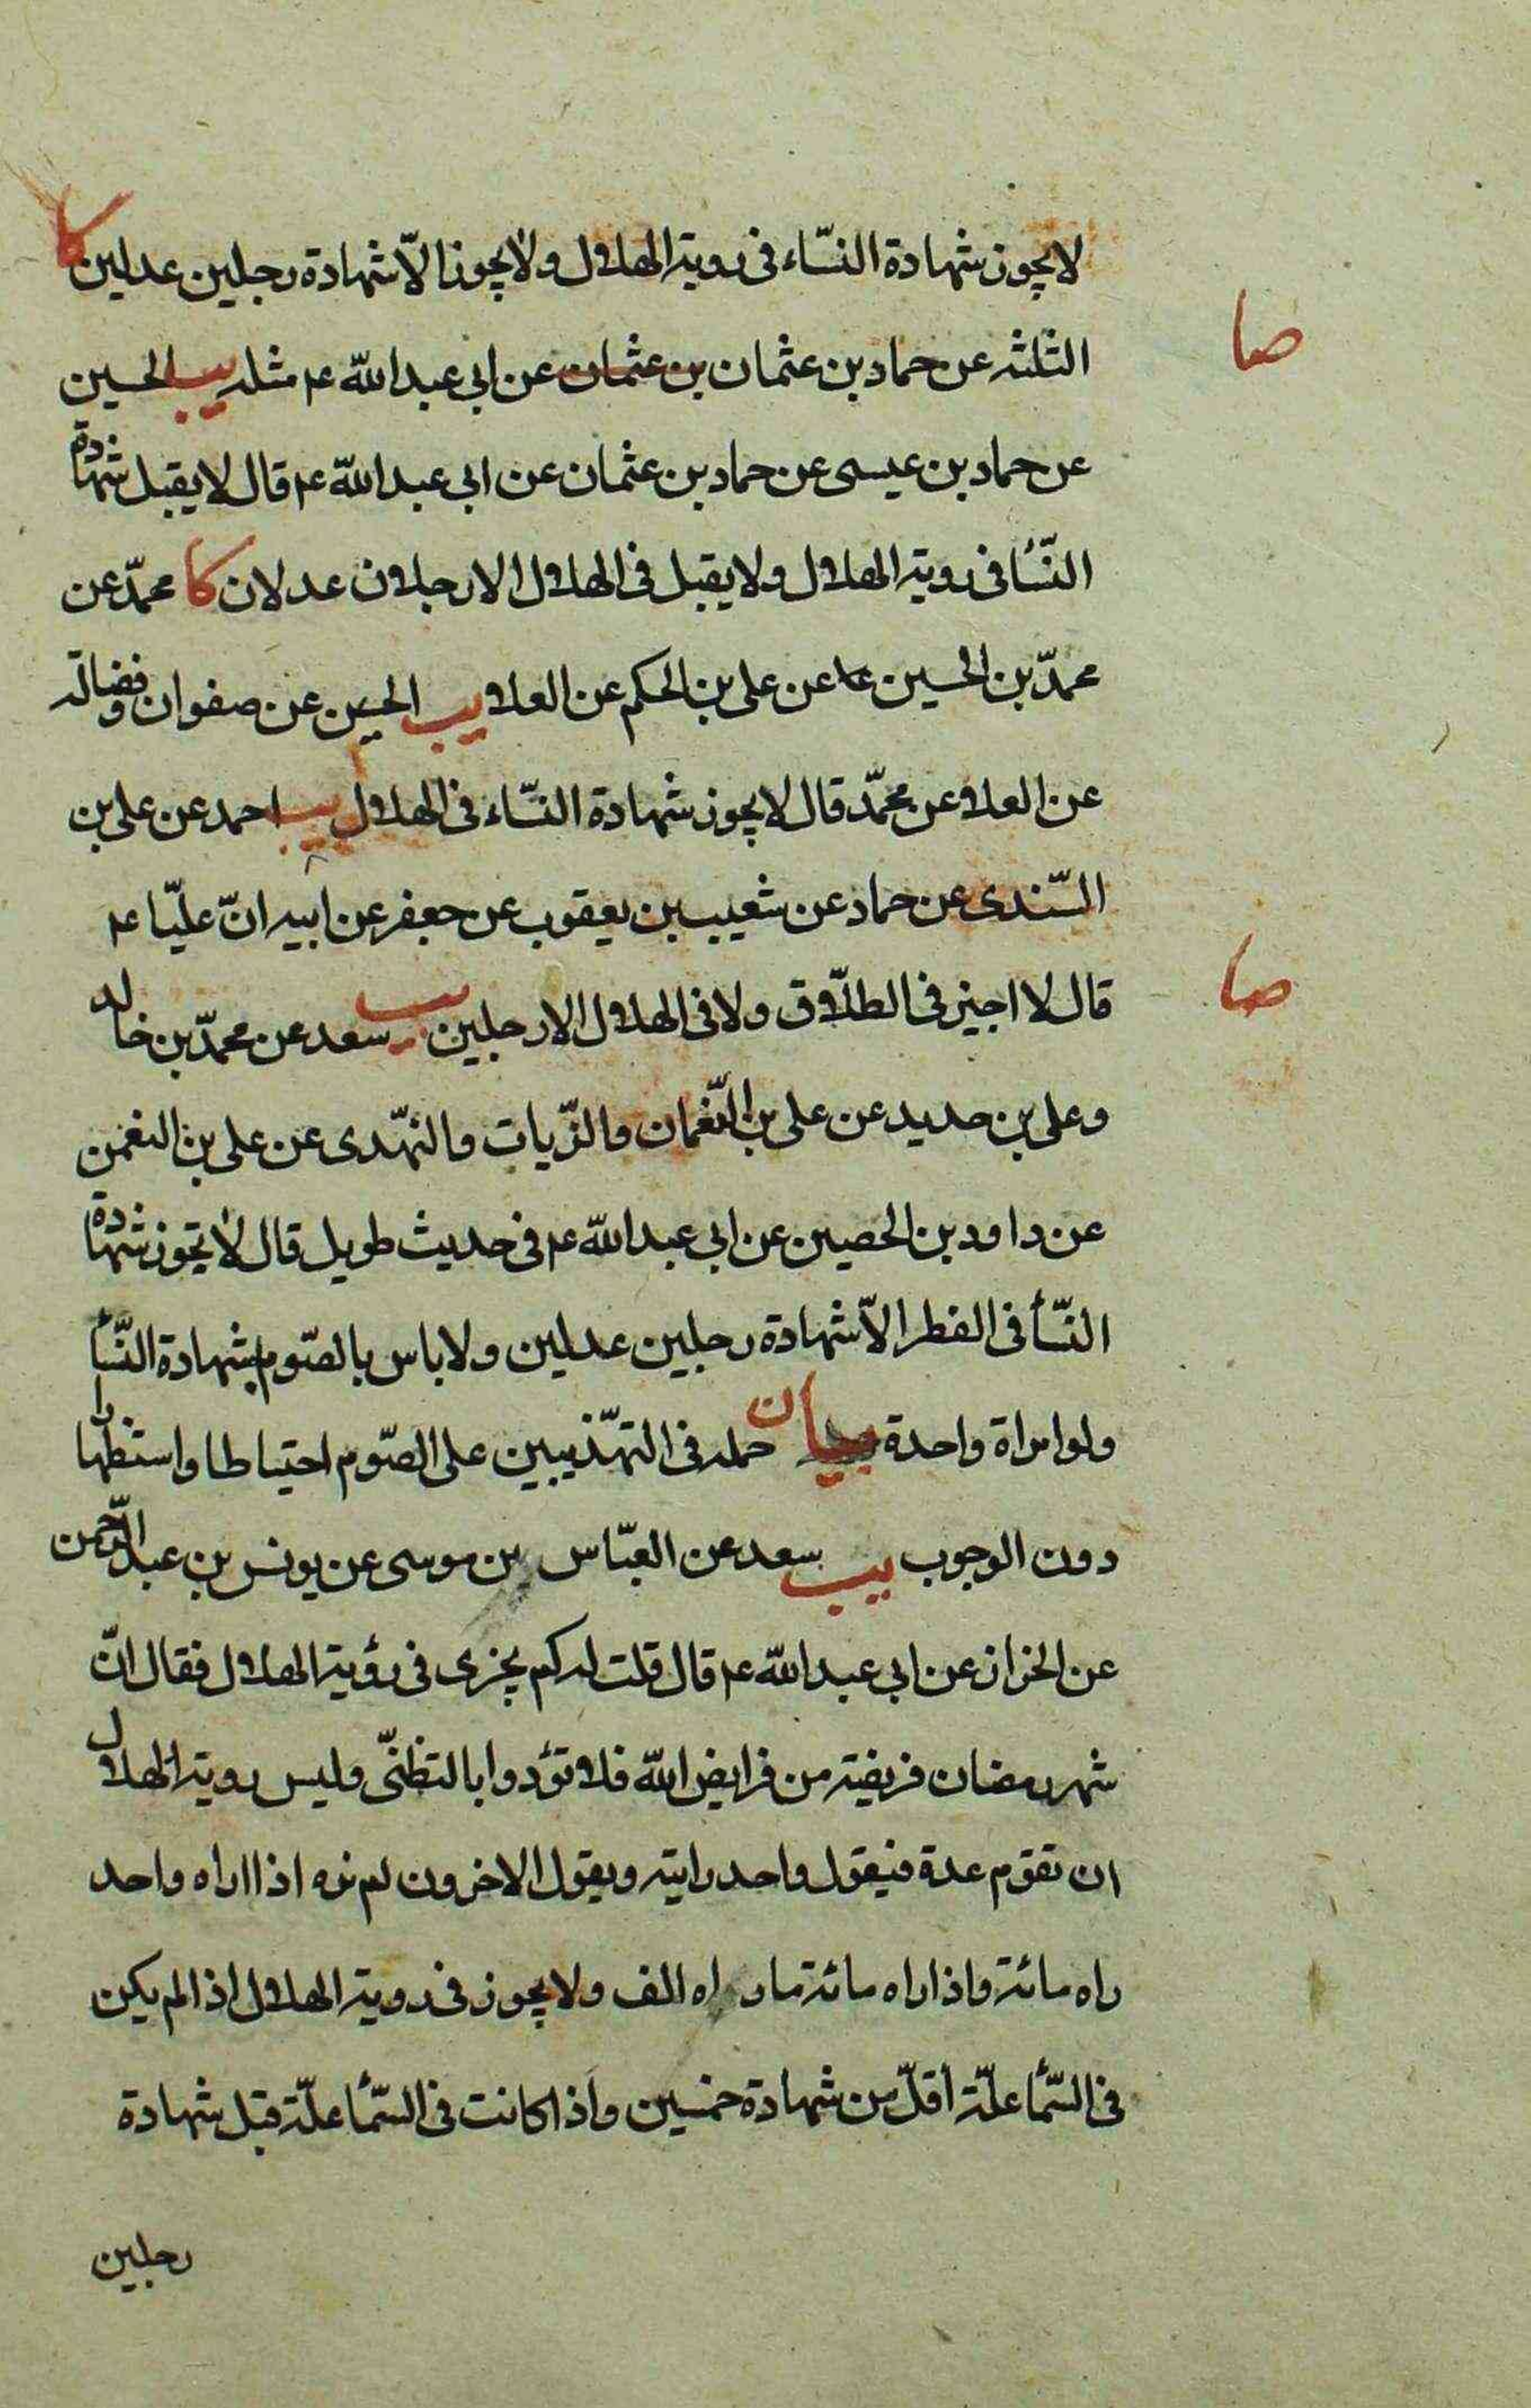 لا يجوز شهادة النسّاء فى روية الهلال ولا يجوز الاّ شهادة رجلين عدلين كا
صا
الثلثه عن حماد بن عثمان بن عثمان عن ابى عبد اللّه عم مثله يب الحسين
عن حماد بن عيسى عن حماد بن عثمان عن ابى عبد اللّه عم قال لا يقبل شهادة
النّسأ فى روية الهلال ولا يقبل فى الهلال الا رجلان عدلان كا محمّد عن
محمّد بن الحسين عن على بن الحكم عن العلا يب الحسين عن صفوان وفضالة
عن العلا عن محمّد قال لا يجوز شهادة النسّاء فى الهلال يب احمد عن على بن
السّندى عن حماد عن شعيب بن يعقوب عن جعفر عن ابيه انّ عليّا عم
صا
قال لا اجيز فى الطلّاق ولا فى الهلال الا رجلين يب سعد عن محمّد بن خالد
وعلى بن حديد عن على بن النّغمان والزّيات والنهّدى عن على بن النغمن
عن داود بن الحصين عن ابى عبد اللّه عم فى حديث طويل قال لا تجوز شهادة
النّسأ فى الفطر الاّ شهادة رجلين عدلين ولا باس بالصّوم بشهادة النّسأ
ولو امراة واحدة بيان حمله فى التهّذيبين على الصّوم احتياطا واستظهارا
دون الوجوب يب سعد عن العبّاس بن موسى عن يونس بن عبد الرّحمن
عن الخزاز عن ابى عبد اللّه عم قال قلت له كم يجزى فى رؤية الهلال فقال انّ
شهر رمضان فريضة من فرايض اللّه فلا تؤدوا بالتظنّى وليس روية الهلال
ان تقوم عدة فيقول واحد رايته ويقول الاخرون لم نره اذا اراه واحد
راه مائة واذا راه مائة ما راه الف ولا يجوز فى روية الهلال اذا لم يكن
فى السّمأ علّة أقلّ من شهادة خمسين واذا كانت فى السّمأ علّة قبل شهادة
رجلين